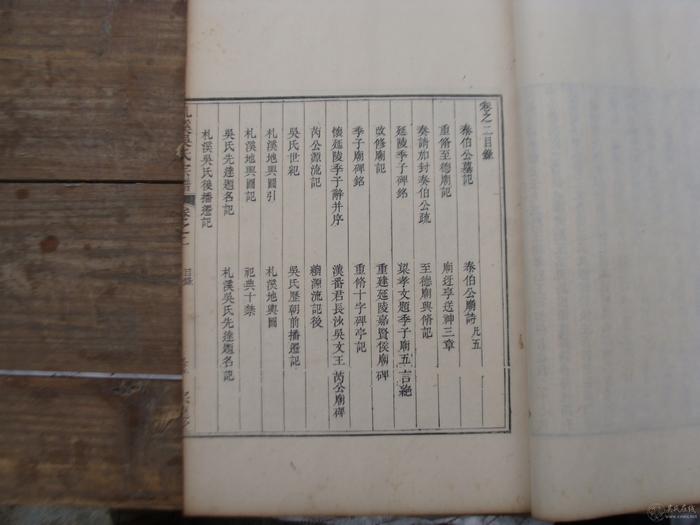 卷之二目錄
泰伯公墓記
泰伯公廟詩 凡五
重脩至德廟記
廟迓享送神三章
奏請加封泰伯公疏
至德廟興脩記
延陵季子碑銘
梁孝文題季子廟五言絶
改修廟記
重建延陵嘉賢侯廟碑
季子廟碑銘
重脩十字碑亭記
懷延陵季子辭并序
漢番君長沙吳文王芮公廟碑
芮公源流記
續源流記後
吳氏世紀
吳氏歷朝前播遷記
札溪地輿圖引
札溪地輿圖
札溪地輿圖記
祀典十禁
吳氏先達題名記
札溪吳氏先達題名記
札溪吳氏後播遷記
札溪吳氏宗譜
卷之二
目錄